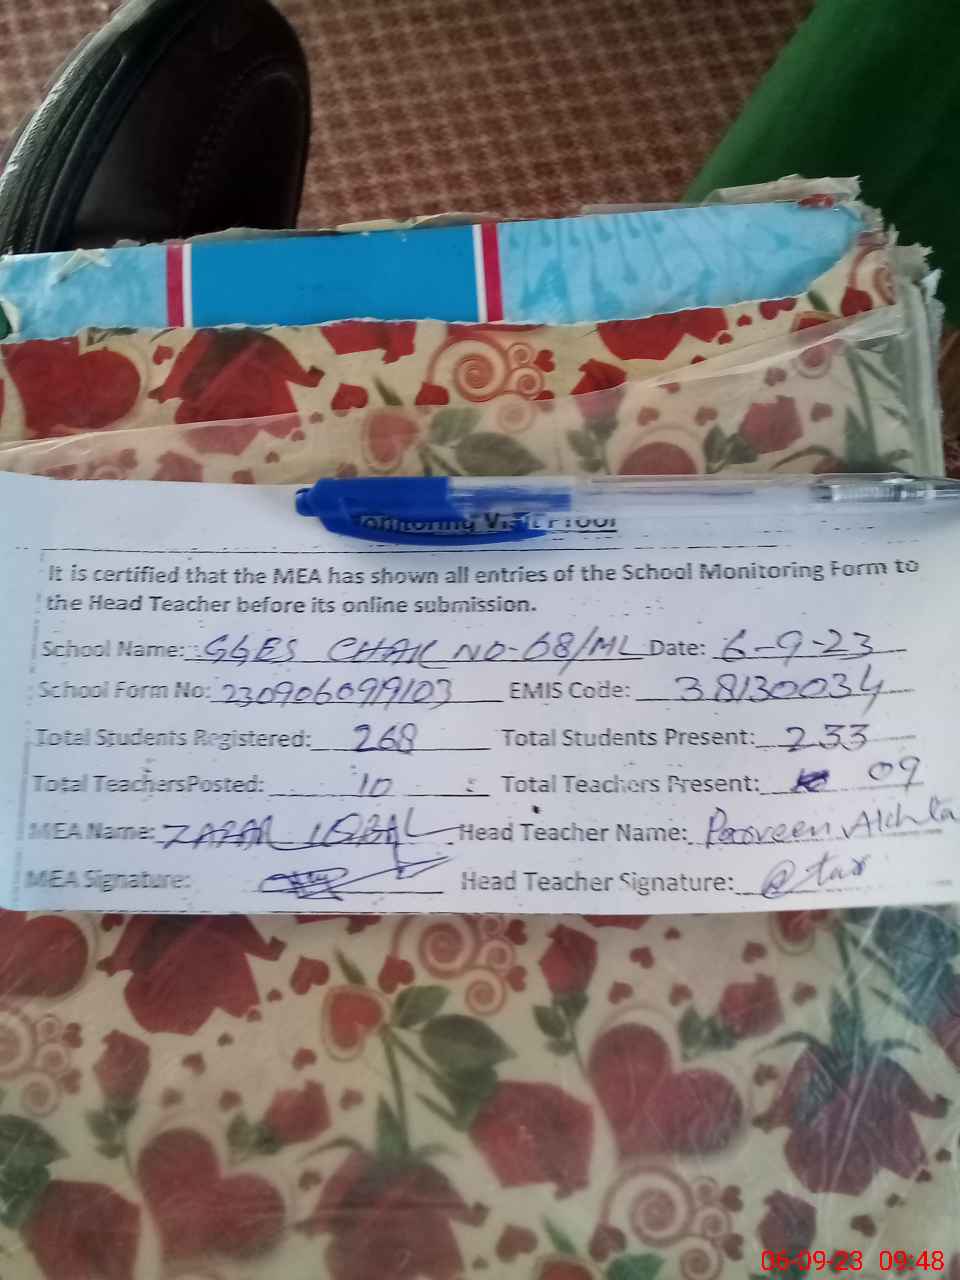 Monitoring Visit Proof
It is certified that the MEA has shown all entries of the School Monitoring Form to
the Head Teacher before its online submission.
School Name: GGES CHAK NO-68/ML Date: 6-9-23
School Form No: EMIS Code: 38130034
Total Students Registered: 268 Total Students Present: 233
Total TeachersPosted: 10 Total Teachers Present: 09
MEA Name: ZAFAR IQBAL Head Teacher Name: Parveen Akhta
MEA Signature: Head Teacher Signature:
06-09-23 09:48